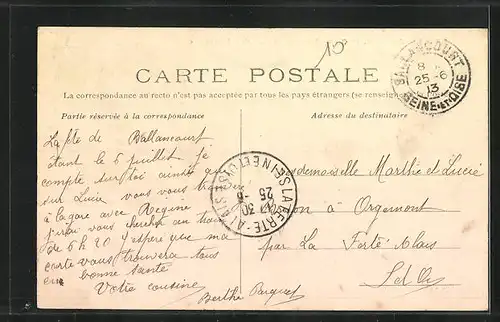 10
CARTE POSTALE
La correspondance au recto n'est pas acceptée par tous les pays étrangers (se renseigne
Partie réservée à la correspondance
Adresse du destinataire
BALLANCOURT
8
25-6
13
SEINE-ET-OISE
La fête de Ballancourt
étant le 6 juillet. Je
compte sur toi ainsi que
sur Lucie vous vous
à la gare avec Régine
j'irai vous chercher au train
de 5 h 20 j'espère que ma
carte vous trouvera tous
en bonne santé
Votre cousine
Berthe
LA FERTE-A
25
SEINE ET OISE
Mademoiselle Marthe et Lucie
à Orgemont
par La Ferté-Alais
S et O